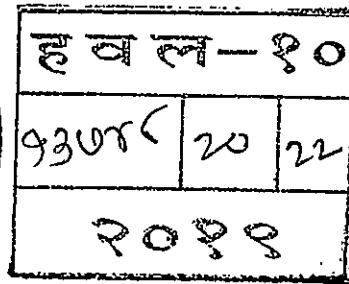 हवल-१०
१३७४८ २० २२
२०१९